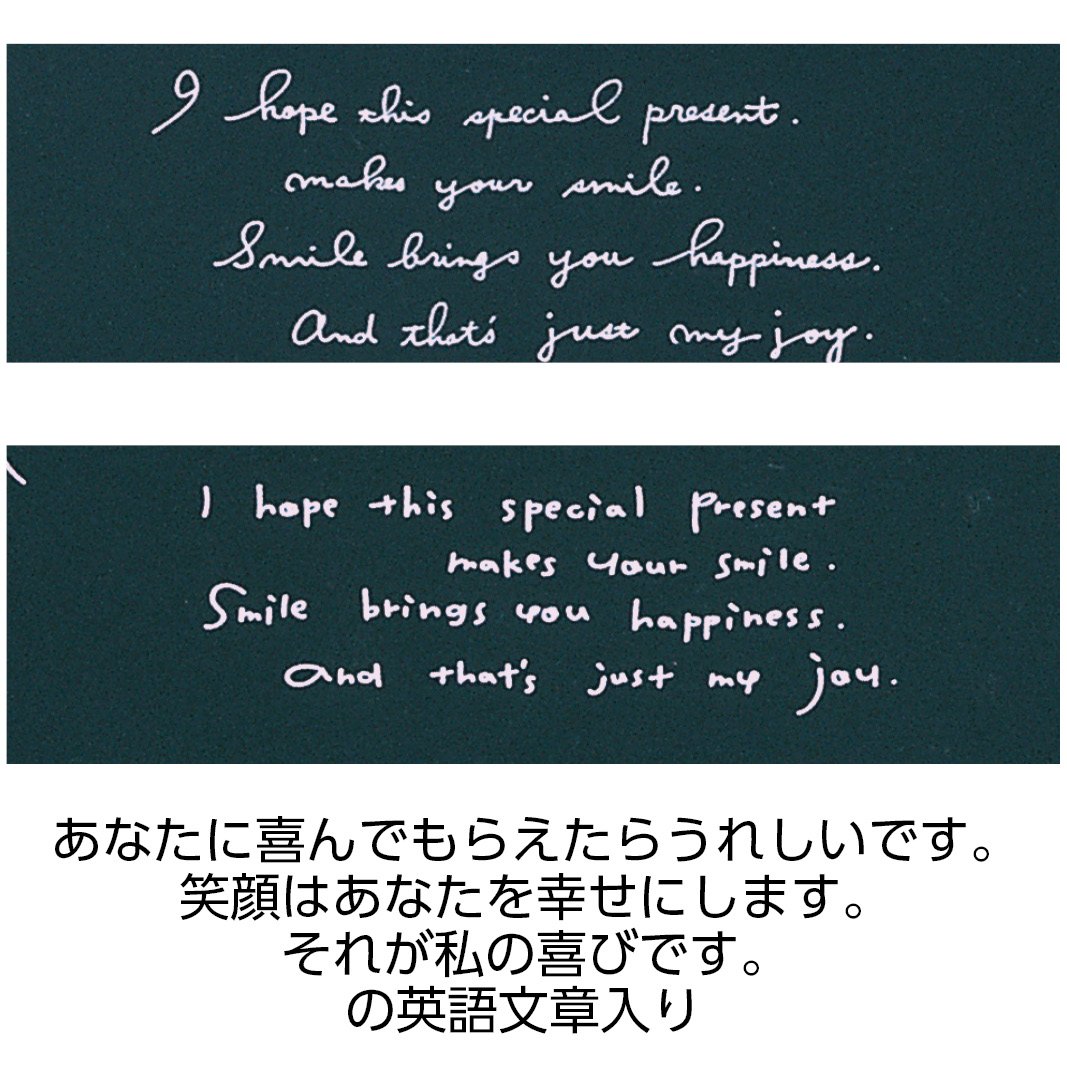 I hope this special present.
makes your smile.
Smile brings you happiness.
And that's just my joy.
I hope this special present
makes your smile.
Smile brings you happiness.
and that's just my joy.
あなたに喜んでもらえたらうれしいです。
笑顔はあなたを幸せにします。
それが私の喜びです。
の英語文章入り